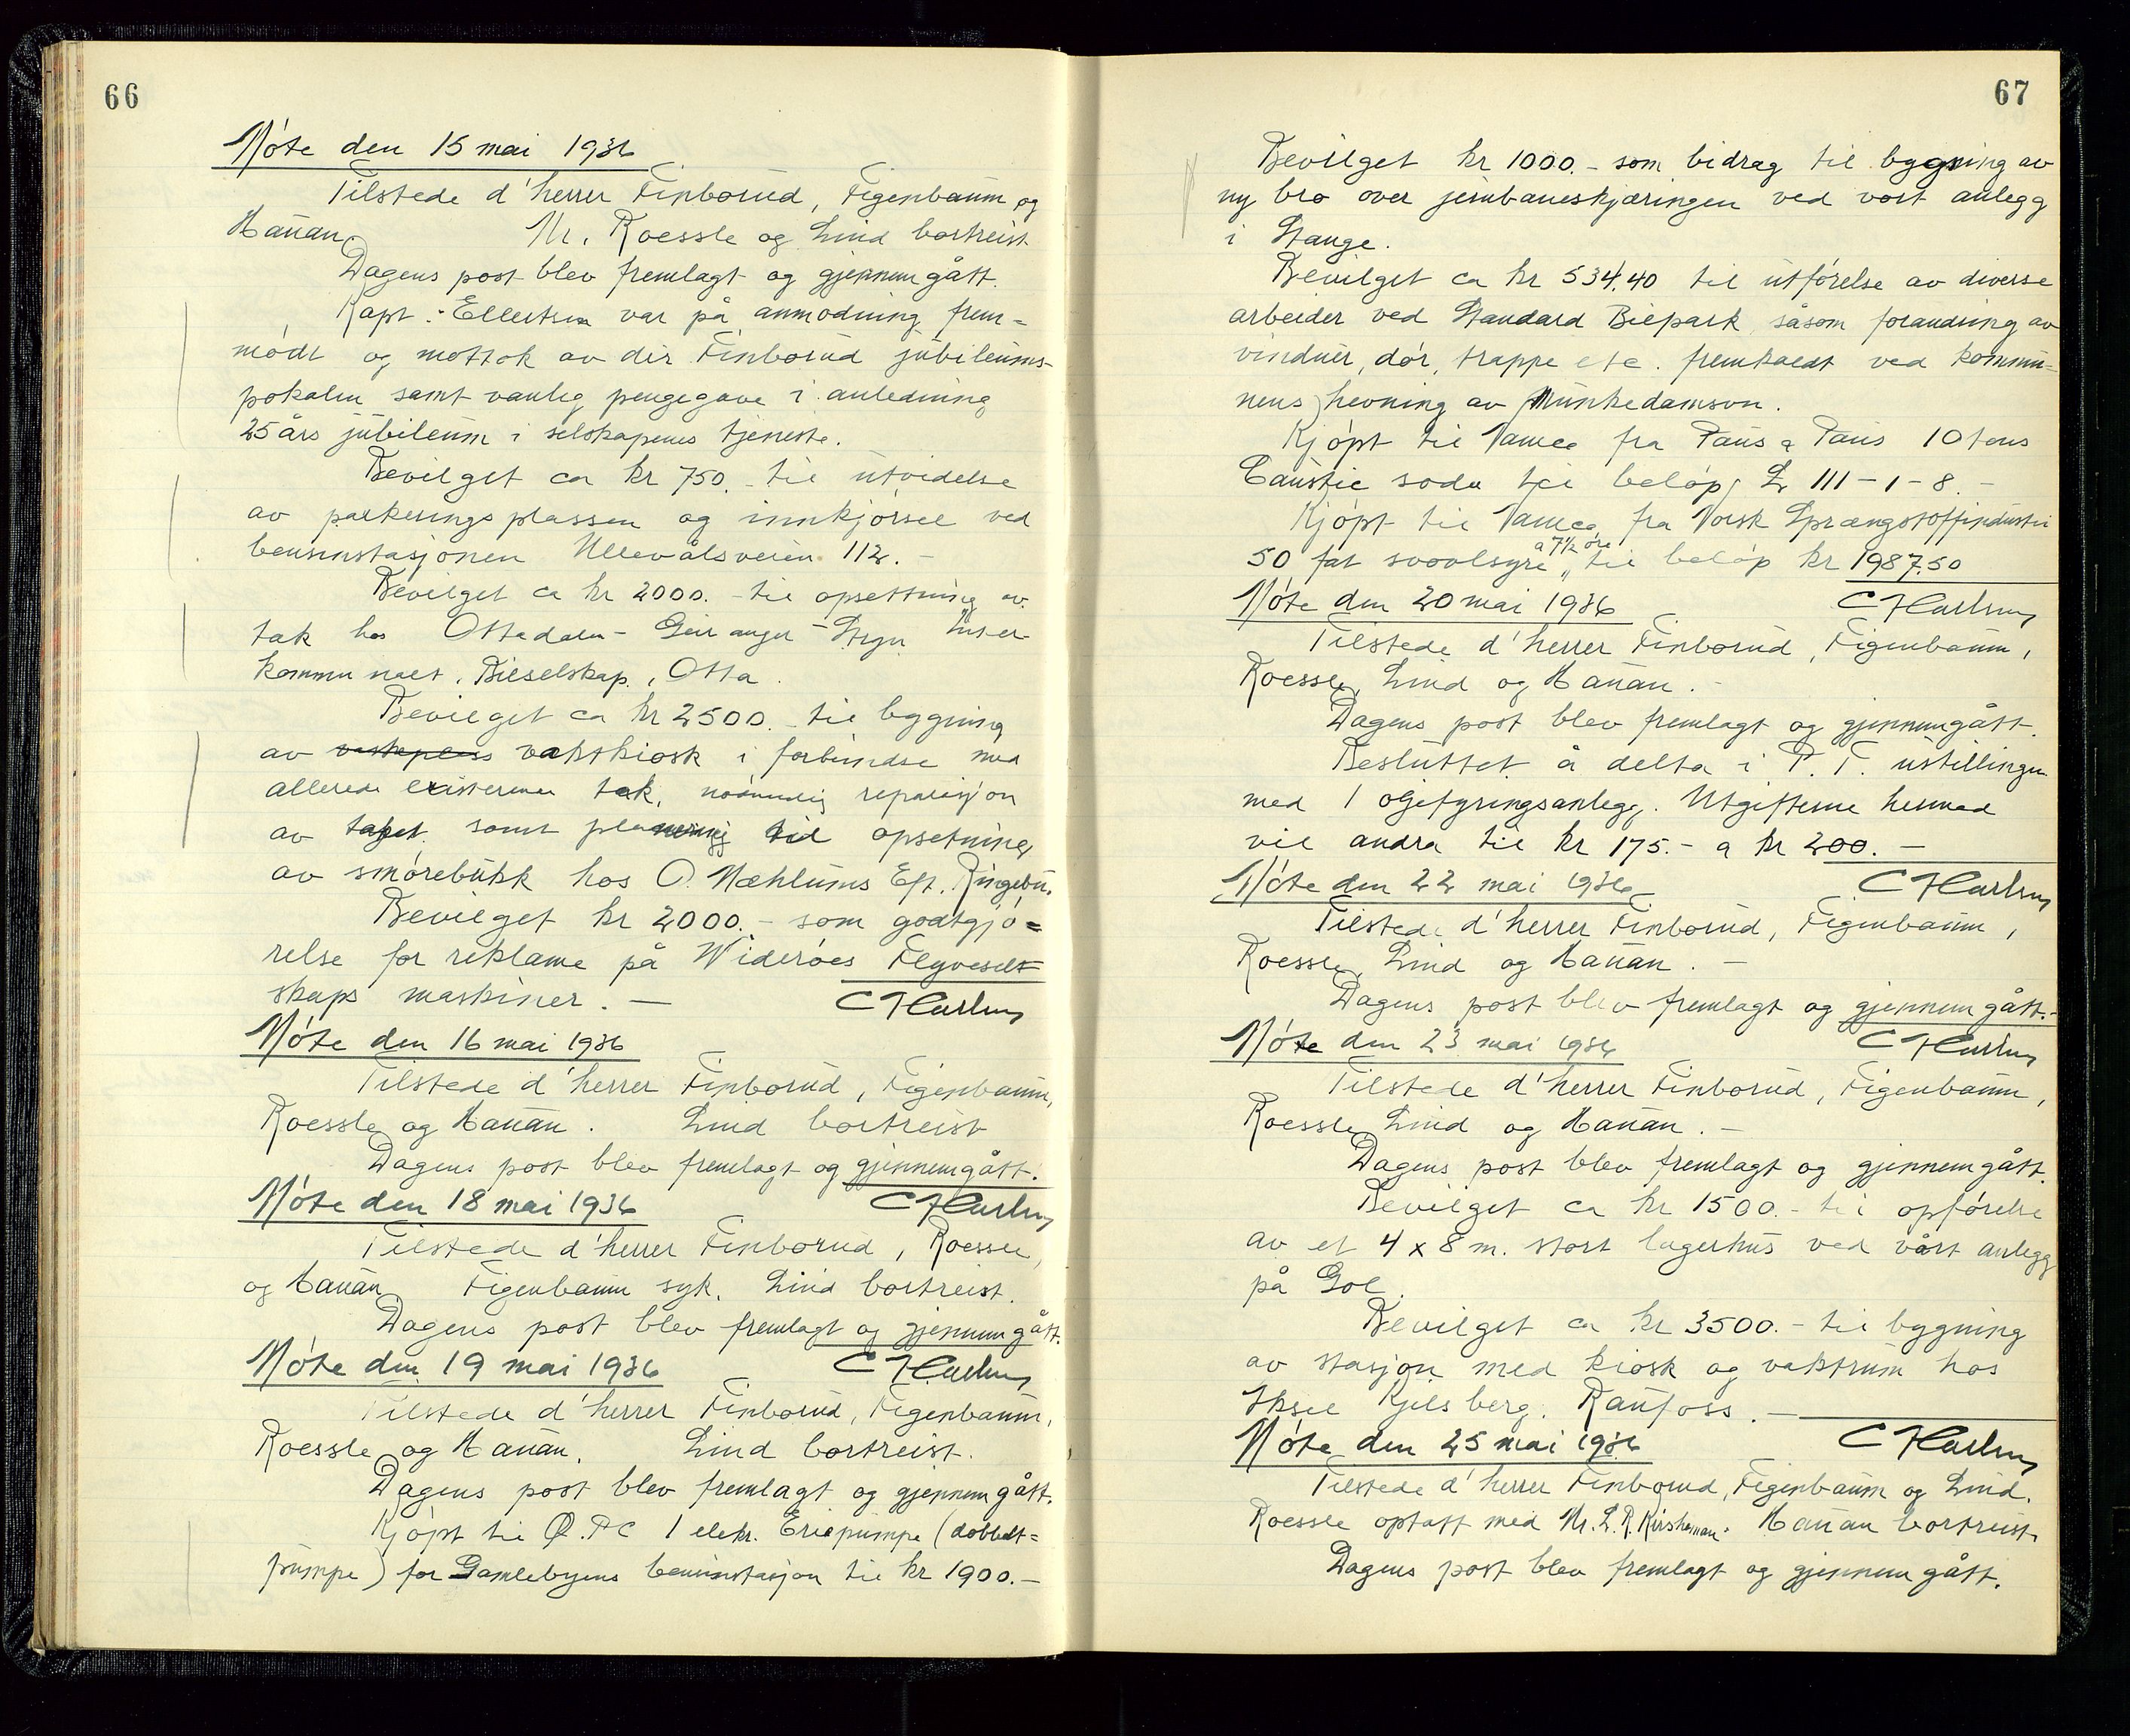 66
Møte den 15 mai 1936
Tilstede d'herrer Finborud, Figenbaum og
Hanan. Mr. Roessle og Lind bortreist
Dagens post blev fremlagt og gjennemgått.
Kapt. Ellertsen var på anmodning frem-
møtt og mottok av dir Finborud jubileums-
pokalen samt vanlig pengegave i anledning
25 års jubileum i selskapenes tjeneste.
Bevilget ca kr 750.- til utvidelse
av parkeringsplassen og innkjørsel ved
bensinstasjonen Ullevålsveien 112.-
Bevilget ca kr 2000.- til opsettning av
tak hos Ottadalen - Geiranger - Stryn Inter-
kommunalt, Bilselskap, Otta.
Bevilget ca kr 2500.- til bygning
av vaktkiosk i forbindse med
allerede eksisterende tak, nødvendig reparasjon
av taket, samt planering til opsetning
av smørebukk hos O. Mæhlums Eft. Ringebu.
Bevilget kr 2000.- som godtgjø-
relse for reklame på Widerøes Flyvesel-
skaps maskiner. -
Møte den 16 mai 1936
Tilstede d'herrer Finborud, Figenbaum,
Roessle og Hanan. Lind bortreist
Dagens post blev fremlagt og gjennemgått.
Møte den 18 mai 1936
Tilstede d'herrer Finborud, Roessle,
og Hanan. Figenbaum syk. Lind bortreist.
Dagens post blev fremlagt og gjennemgått.
Møte den 19 mai 1936
Tilstede d'herrer Finborud, Figenbaum,
Roessle og Hanan. Lind bortreist.
Dagens post blev fremlagt og gjennemgått.
Kjøpt til 1 elekr. Eriepumpe (dobbelt-
pumpe) for Gamlebyens bensinstasjon til kr 1900.-
67
Bevilget kr 1000.- som bidrag til bygning av
ny bro over jernbaneskjæringen ved vort anlegg
i Stange.
Bevilget ca kr 534.40 til utførelse av diverse
arbeider ved Standard Bilpark såsom forandring av
vinduer, dør, trappe etc. fremkaldt ved kommu-
nens hevning av Munkedamsvn.
Kjøpt til Vamea fra Paus & Paus 10 tons
Caustic soda til beløp £ 111-1-8.-
Kjøpt til Vamea fra Norsk Sprængstoffindustri
50 fat svovlsyre a 7½ øre til beløp kr 1987.50
Møte den 20 mai 1936
Tilstede d'herrer Finborud, Figenbaum,
Roessle, Lind og Hanan.-
Dagens post blev fremlagt og gjennemgått.
Besluttet å delta i P. F. ustillingen
med 1 oljefyringsanlegg. Utgiftene hermed
vil andra til kr 175.- a kr 200.-
Møte den 22 mai 1936
Tilstede d'herrer Finborud, Figenbaum,
Roessle, Lind og Hanan.-
Dagens post blev fremlagt og gjennemgått.-
Møte den 23 mai 1936
Tilstede d'herrer Finborud, Figenbaum,
Roessle, Lind og Hanan.-
Dagens post blev fremlagt og gjennemgått.
Bevilget ca kr 1500.- til opførelse
av et 4 x 8 m. stort lagerhus ved vårt anlegg
på Gol.
Bevilget ca kr 3500.- til bygning
av stasjon med kiosk og vaktrum hos
Kjelsberg, Raufoss.-
Møte den 25 mai 1936
Tilstede d'herrer Finborud, Figenbaum og Lind.
Roessle optatt med Mr. L. R. Kirshaman. Hanan bortreist
Dagens post blev fremlagt og gjennemgått.